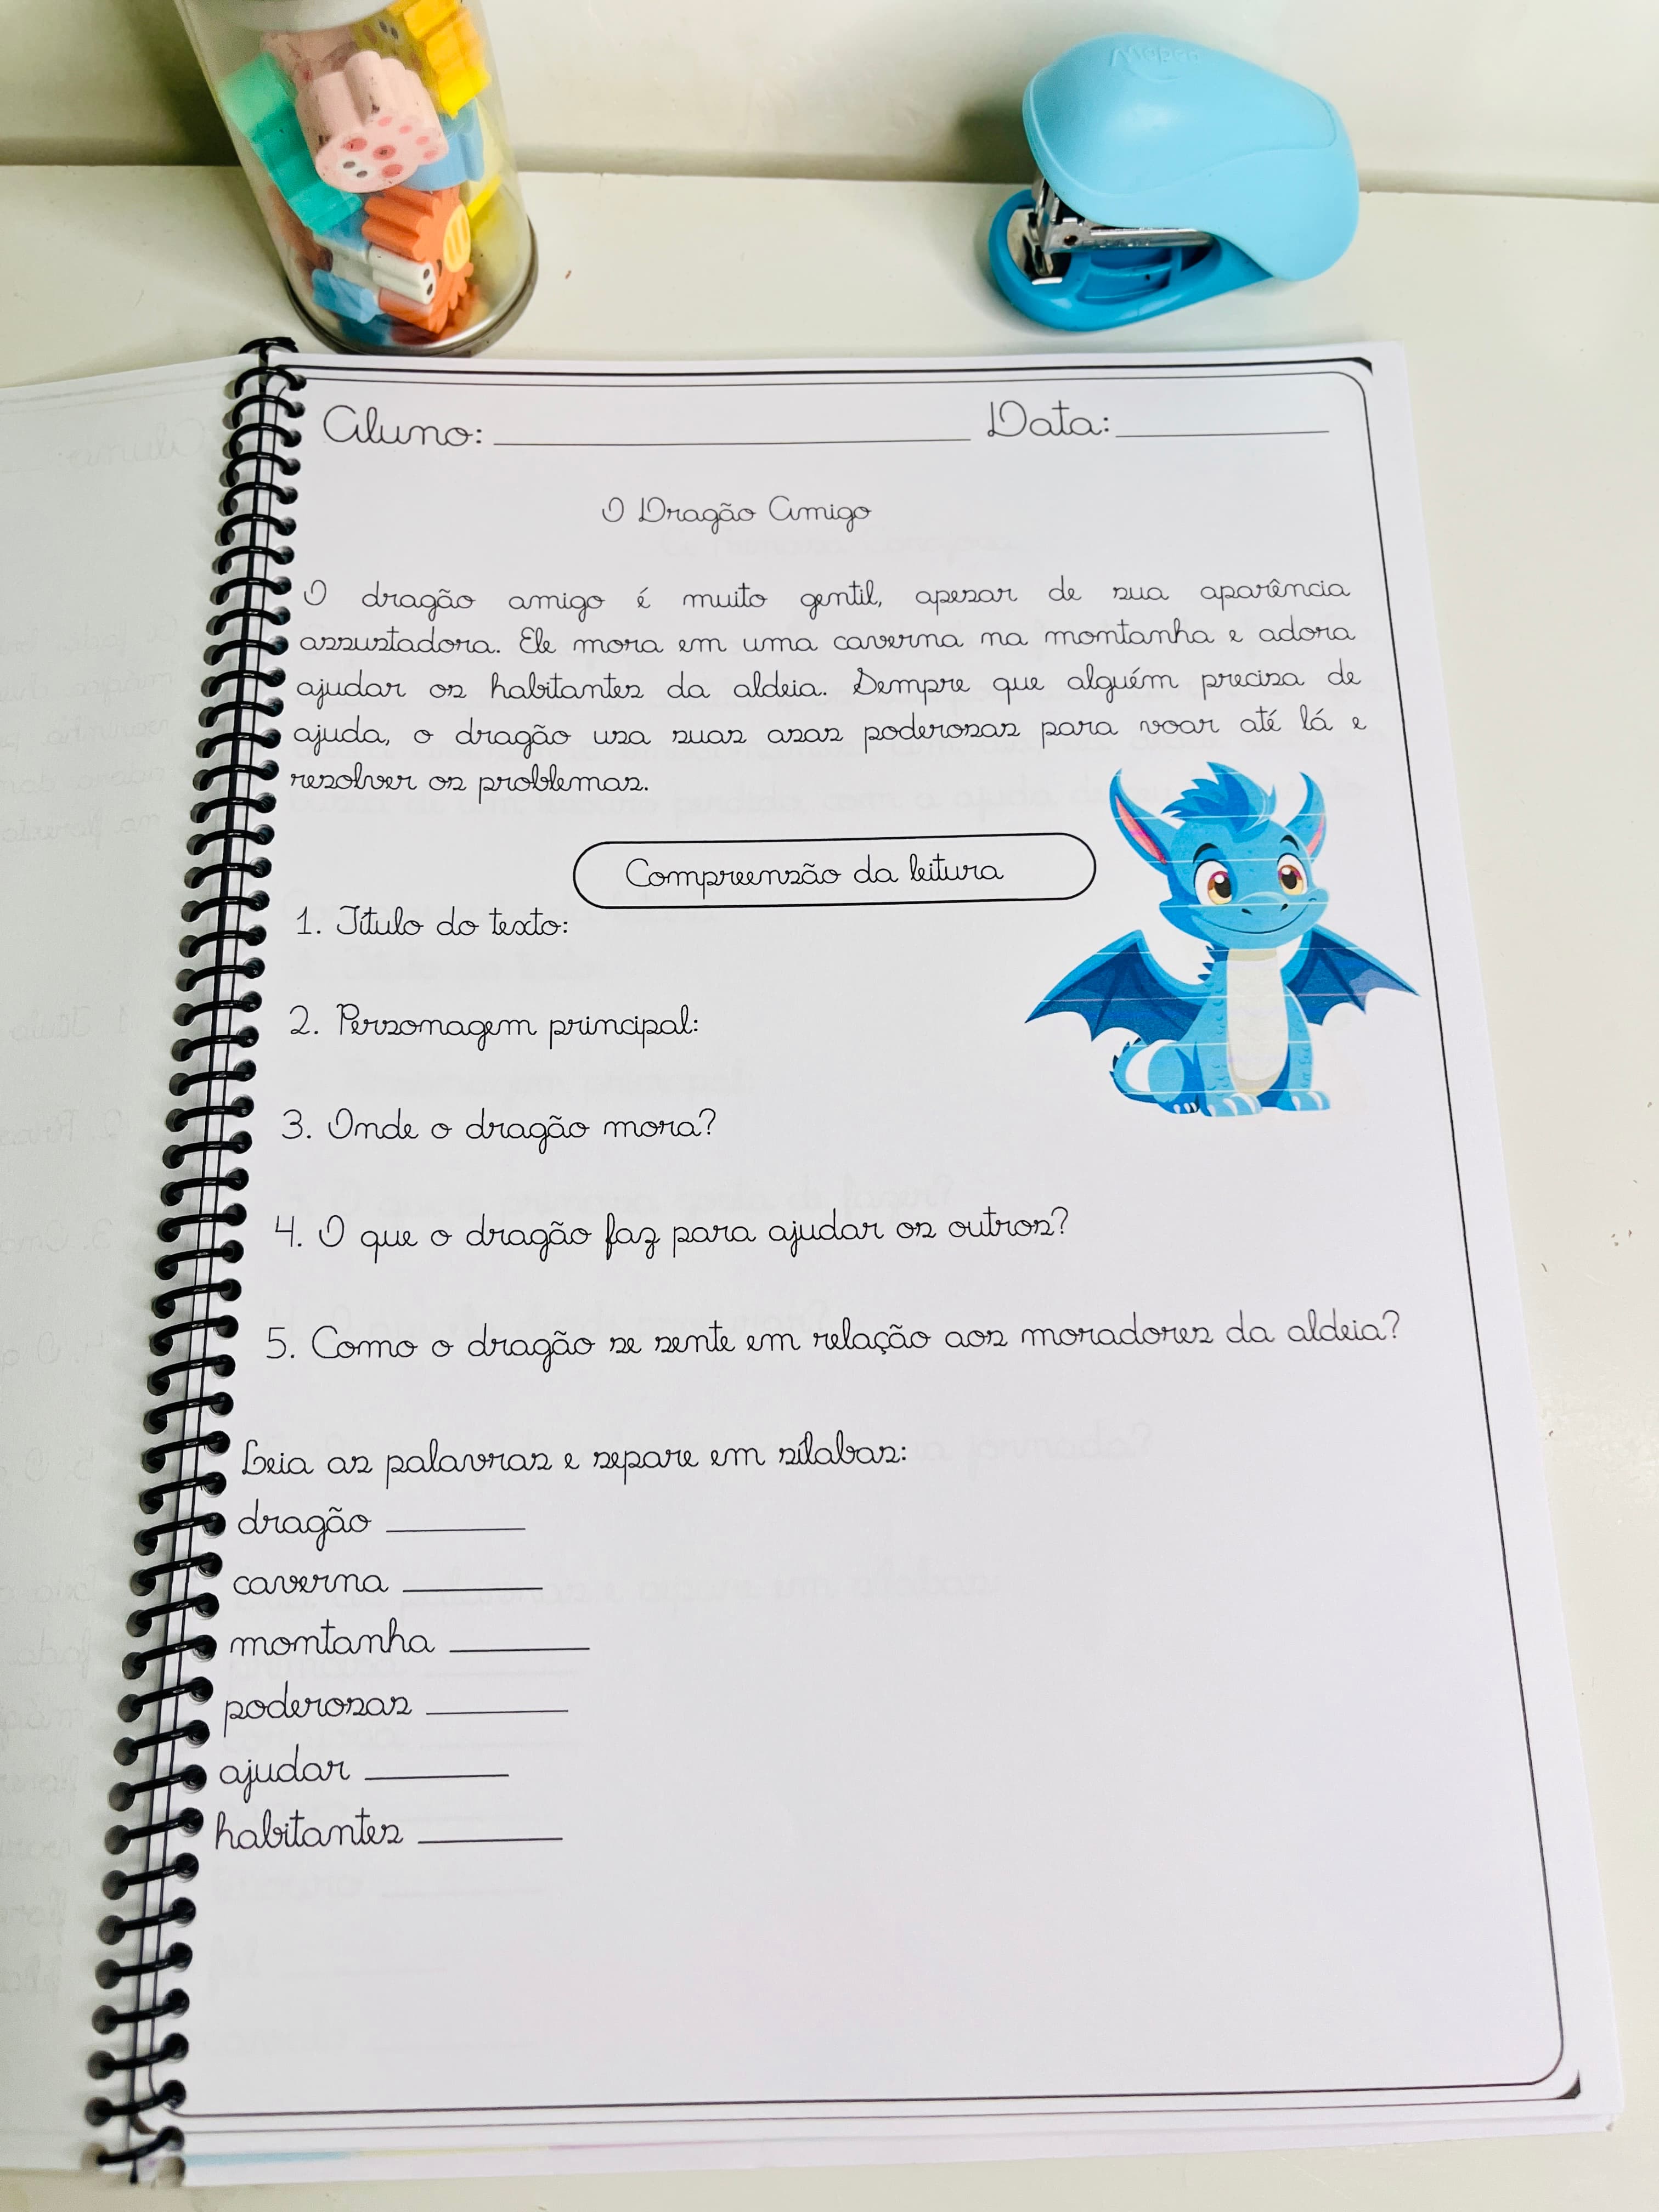 Maped
Aluno: ____________ Data: ________
O Dragão Amigo
O dragão amigo é muito gentil, apesar de sua aparência
assustadora. Ele mora em uma caverna na montanha e adora
ajudar os habitantes da aldeia. Sempre que alguém precisa de
ajuda, o dragão usa suas asas poderosas para voar até lá e
resolver os problemas.
Compreensão da leitura
1. Título do texto:
2. Personagem principal:
3. Onde o dragão mora?
4. O que o dragão faz para ajudar os outros?
5. Como o dragão se sente em relação aos moradores da aldeia?
Leia as palavras e separe em sílabas:
dragão ________
caverna ________
montanha ________
poderosas ________
ajudar ________
habitantes ________